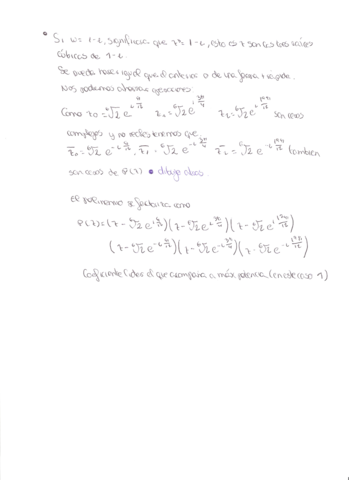 • Si w = 1-i, significa que z³ = 1-i, esto es z son las tres raíces
cúbicas de 1-i.
Se puede hacer igual que el anterior o de una forma + rápida.
Nos podemos ahorrar operaciones.
Como z₀ = ⁶√2 e^{i π/12} z₁ = ⁶√2 e^{i 3π/4} z₂ = ⁶√2 e^{i 17π/12} son ceros
complejos y no reales tenemos que
z̄₀ = ⁶√2 e^{-i π/12}, z̄₁ = ⁶√2 e^{-i 3π/4}, z̄₂ = ⁶√2 e^{-i 17π/12} también
son ceros de P(z) •
El polinomio se factoriza como
P(z) = (z - ⁶√2 e^{i π/12})(z - ⁶√2 e^{i 3π/4})(z - ⁶√2 e^{i 17π/12})
(z - ⁶√2 e^{-i π/12})(z - ⁶√2 e^{-i 3π/4})(z - ⁶√2 e^{-i 17π/12})
Coeficiente líder el que acompaña a máx potencia (en este caso 1)